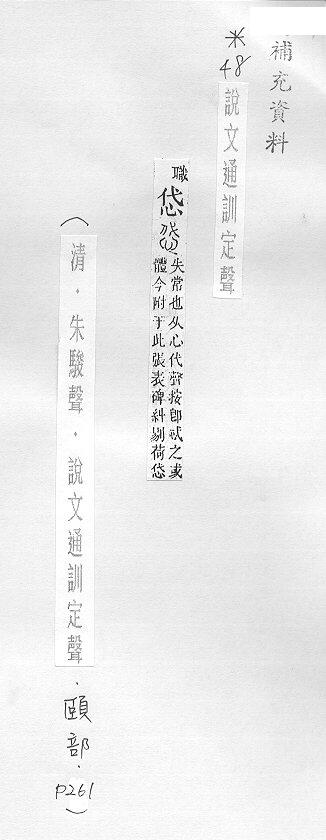 補充資料
*48
說文通訓定聲
職
失常也从心代聲按卽忒之或
體今附于此張表碑科剔荷
(清・朱駿聲・說文通訓定聲・頤部・p261)